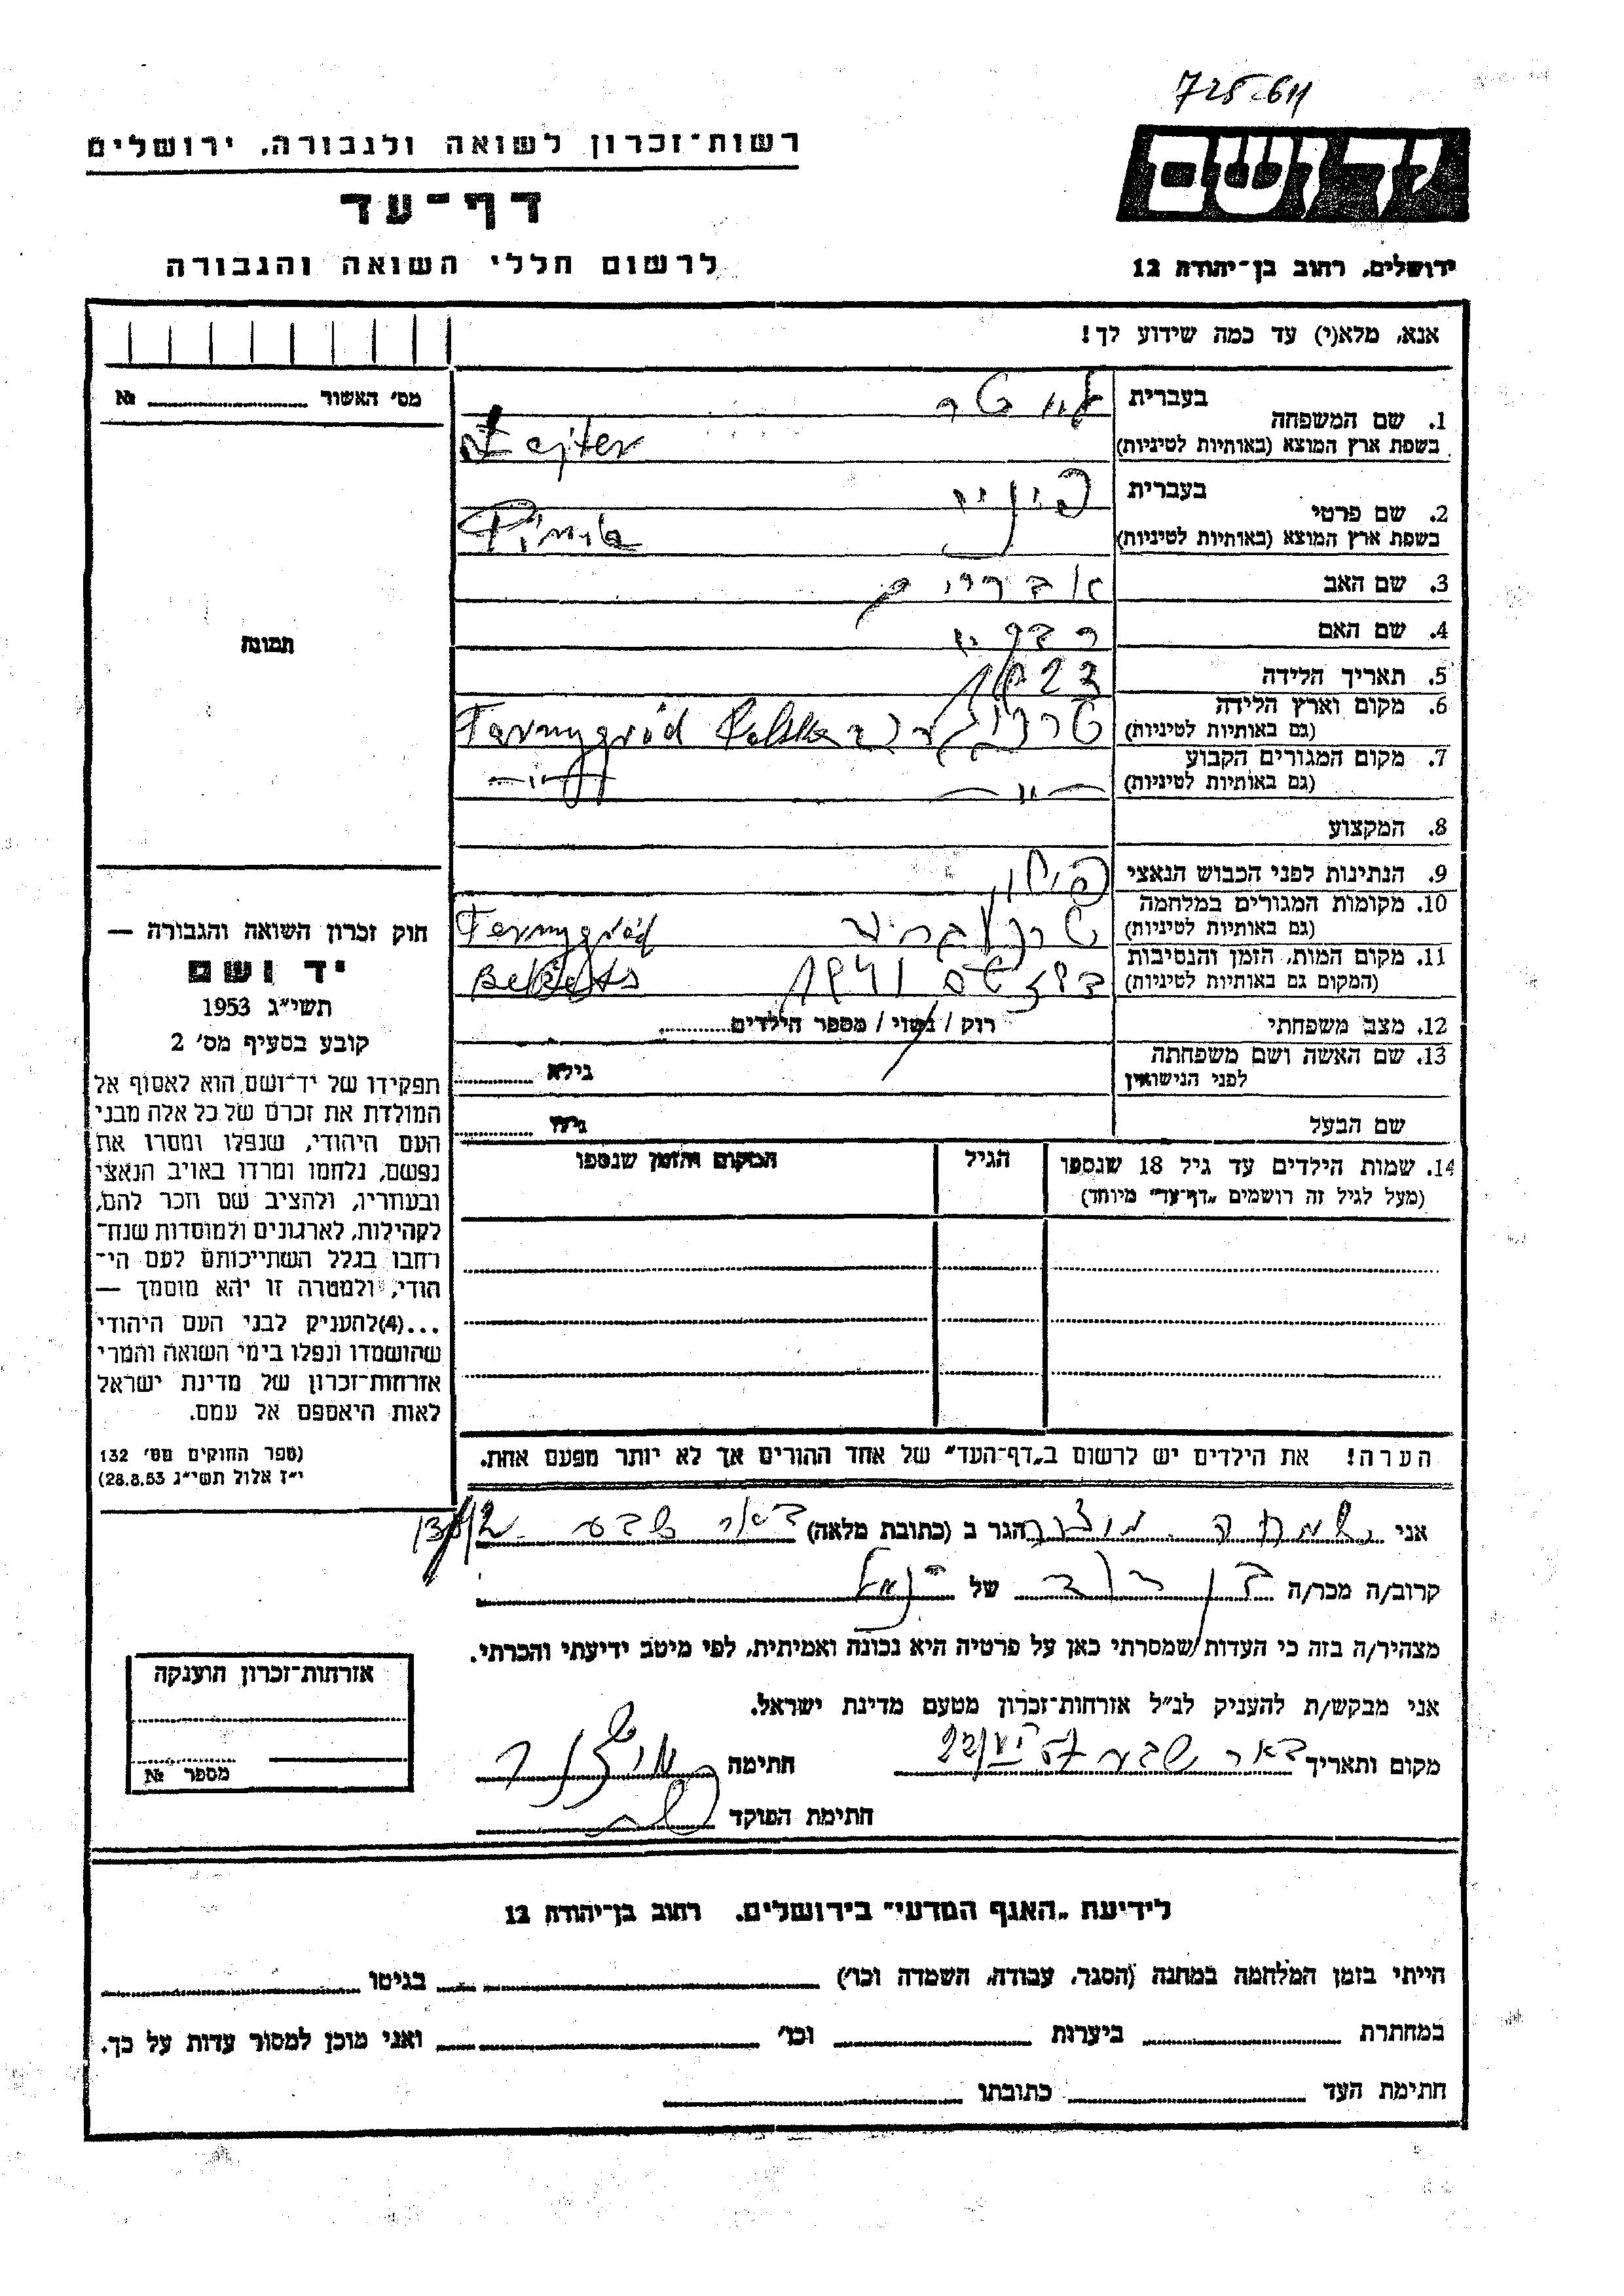 725-611
רשות־זכרון לשואה ולגבורה, ירושלים
יד ושם
דף־עד
לרשום חללי השואה והגבורה
ירושלים, רחוב בן־יהודה 12
אנא, מלא(י) עד כמה שידוע לך!
מס' האשור № 
1. שם המשפחה
בעברית לייטר
בשפת ארץ המוצא (באותיות לטיניות) Lejter
2. שם פרטי
בעברית
בשפת ארץ המוצא (באותיות לטיניות)
3. שם האב
4. שם האם
5. תאריך הלידה 1923
6. מקום וארץ הלידה
(גם באותיות לטיניות) Tarnygród Polska
7. מקום המגורים הקבוע
(גם באותיות לטיניות) —"—
8. המקצוע
9. הנתינות לפני הכבוש הנאצי
10. מקומות המגורים במלחמה
(גם באותיות לטיניות) Tarnygród
11. מקום המות, הזמן והנסיבות
(המקום גם באותיות לטיניות) 1941
12. מצב משפחתי רוק / נשוי / מספר הילדים
13. שם האשה ושם משפחתה
לפני הנישואין גילא
שם הבעל גילו
תמונה
חוק זכרון השואה והגבורה —
יד ושם
תשי״ג 1953
קובע בסעיף מס' 2
תפקידו של יד־ושם הוא לאסוף אל
המולדת את זכרם של כל אלה מבני
העם היהודי, שנפלו ומסרו את
נפשם, נלחמו ומרדו באויב הנאצי
ובעוזריו, ולהציב שם וזכר להם,
לקהילות, לארגונים ולמוסדות שנח־
רחבו בגלל השתייכותם לעם הי־
הודי, ולמטרה זו יהא מוסמך —
...(4)להעניק לבני העם היהודי
שהושמדו ונפלו בימי השואה והמרי
אזרחות־זכרון של מדינת ישראל
לאות היאספם אל עמם.
(ספר החוקים מס' 132
י״ז אלול תשי״ג 28.8.53)
14. שמות הילדים עד גיל 18 שנספו
(מעל לגיל זה רושמים „דף־עד״ מיוחד)
הגיל
המקום והזמן שנספו
הערה! את הילדים יש לרשום ב„דף־העד״ של אחד ההורים אך לא יותר מפעם אחת.
אני שמחה הגר ב (כתובת מלאה) באר שבע
קרוב/ה מכר/ה בן דוד של
מצהיר/ה בזה כי העדות שמסרתי כאן על פרטיה היא נכונה ואמיתית, לפי מיטב ידיעתי והכרתי.
אני מבקש/ת להעניק לנ״ל אזרחות־זכרון מטעם מדינת ישראל.
מקום ותאריך באר שבע חתימה
חתימת הפוקד
אזרחות־זכרון הוענקה
מספר №
לידיעת „האגף המדעי״ בירושלים, רחוב בן־יהודה 12
הייתי בזמן המלחמה במחנה (הסגר, עבודה, השמדה וכו') בגיטו
במחתרת ביערות וכו' ואני מוכן למסור עדות על כך.
חתימת העד כתובתו